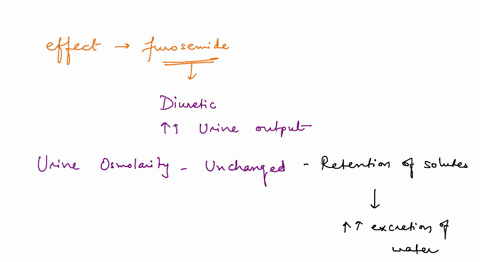 effect → furosemide
↓
Diuretic
↑↑ Urine output
Urine Osmolarity - Unchanged - Retention of solutes
↓
↑↑ excretion of
water